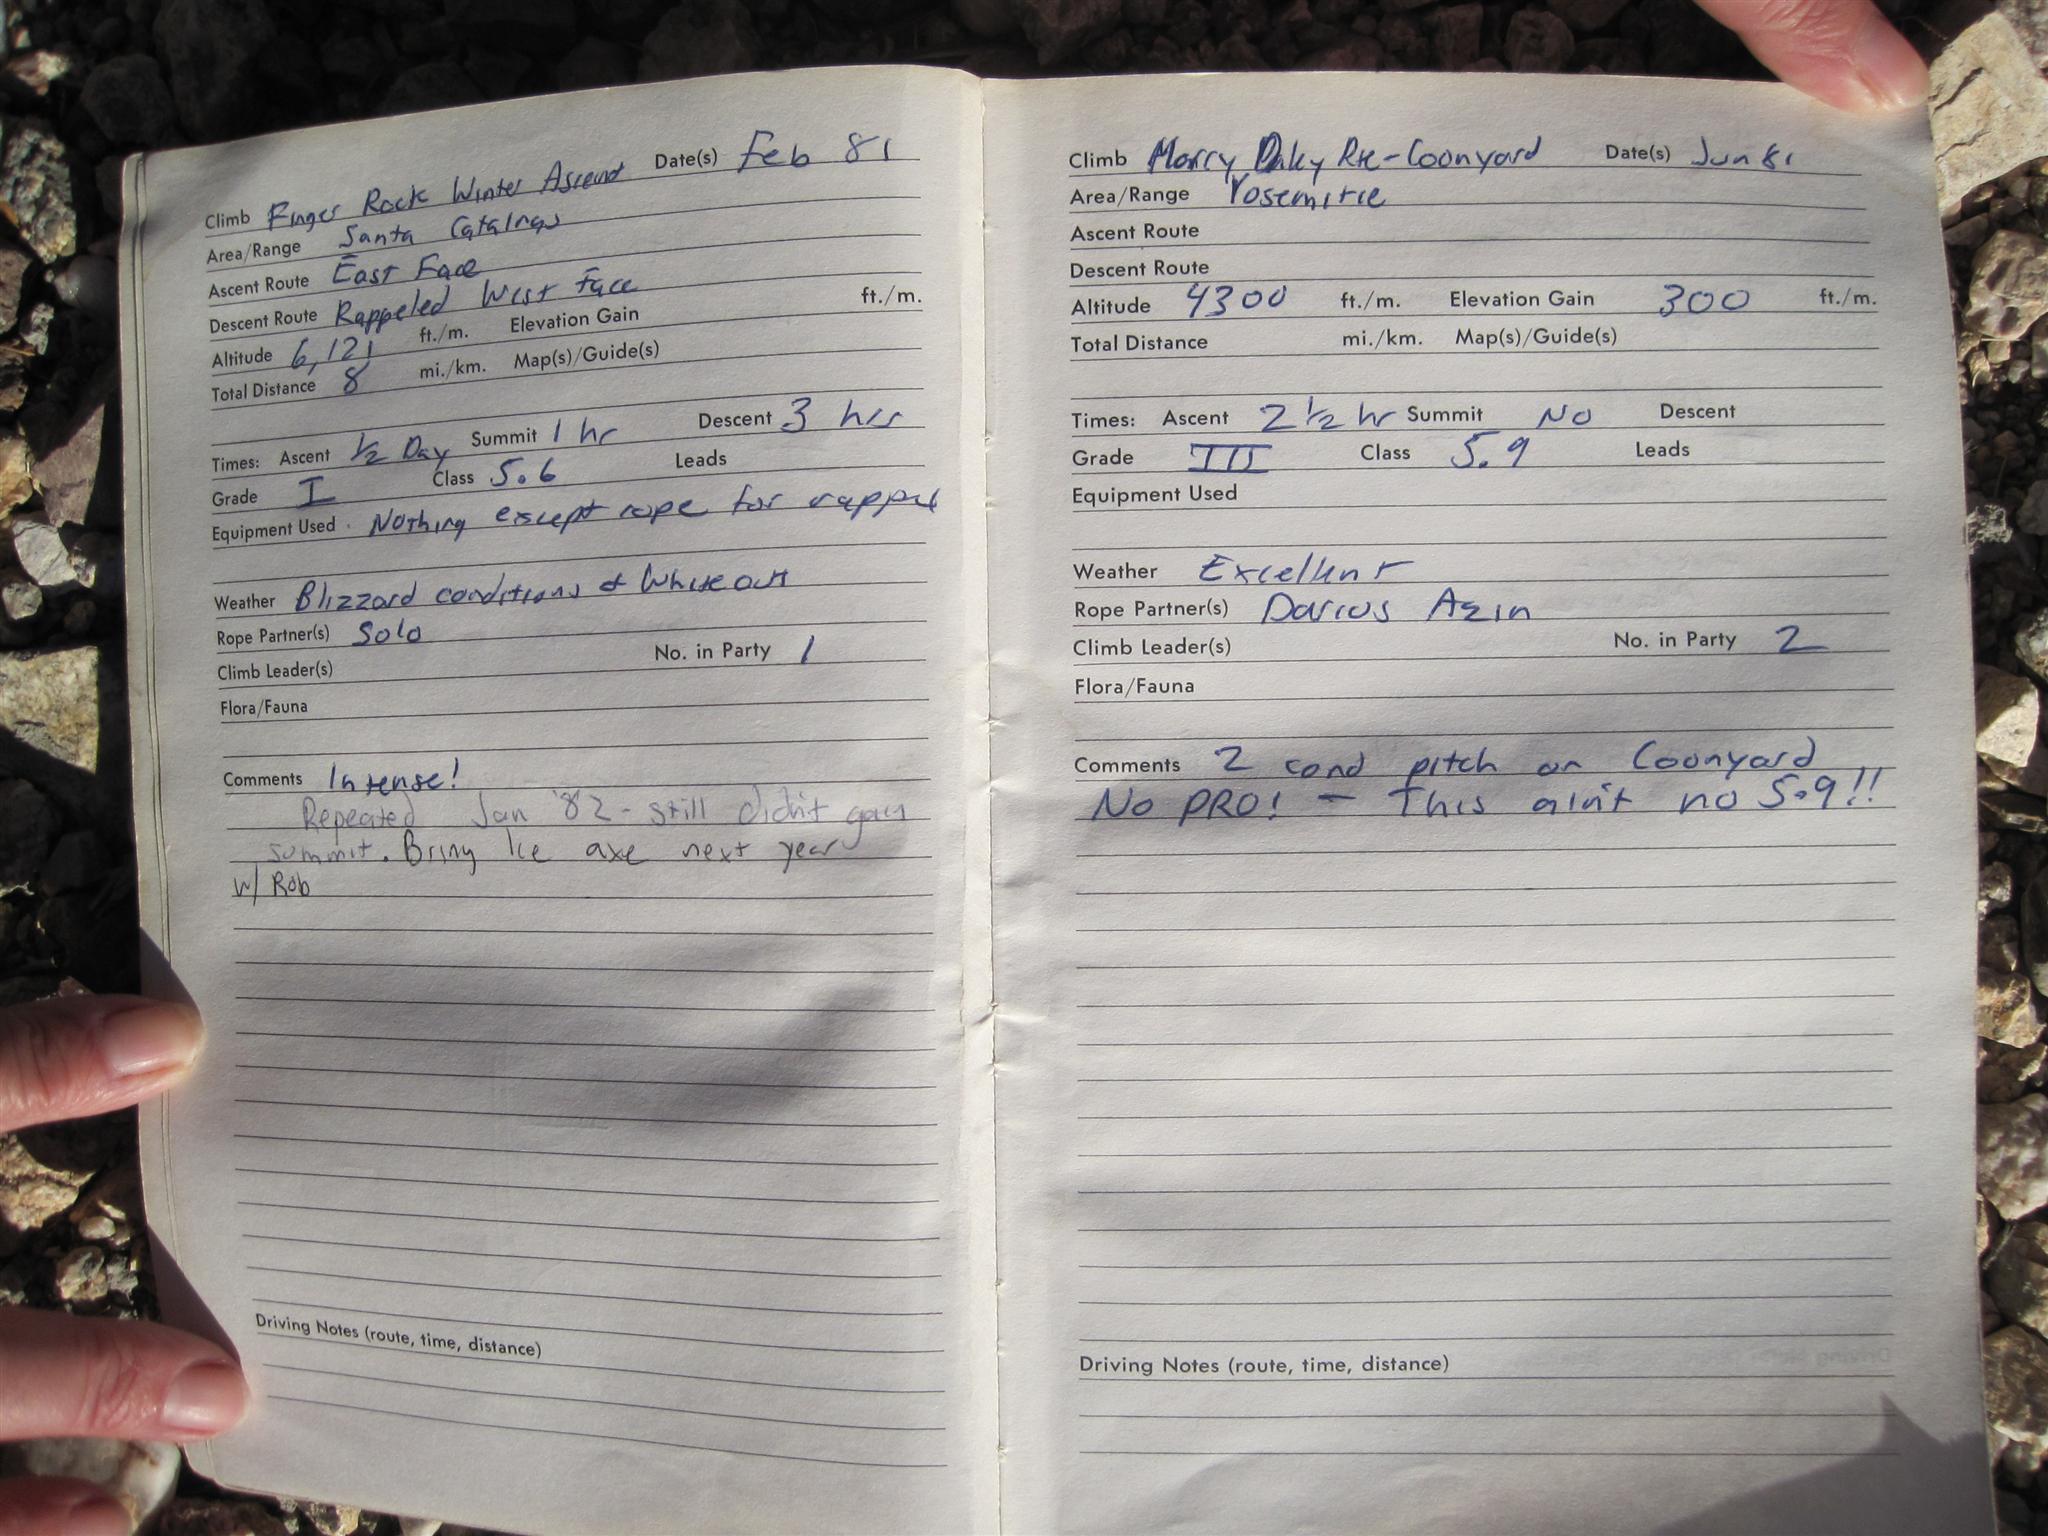 Climb Finger Rock Winter Ascend Date(s) Feb 81
Area/Range Santa Catalinas
Ascent Route East Face
Descent Route Rappeled West Face
Altitude 6,121 ft./m. Elevation Gain ft./m.
Total Distance 8 mi./km. Map(s)/Guide(s)
Times: Ascent 1/2 Day Summit 1 hr Descent 3 hrs
Grade I Class 5.6 Leads
Equipment Used Nothing except rope for rappel
Weather Blizzard conditions & White out
Rope Partner(s) Solo
Climb Leader(s) No. in Party 1
Flora/Fauna
Comments Intense!
Repeated Jan '82 - still didn't gain
summit. Bring Ice axe next year
w/ Rob
Driving Notes (route, time, distance)
Climb Marcy Daley Rte - Coonyard Date(s) Jun 81
Area/Range Yosemitie
Ascent Route
Descent Route
Altitude 4300 ft./m. Elevation Gain 300 ft./m.
Total Distance mi./km. Map(s)/Guide(s)
Times: Ascent 2 1/2 hr Summit No Descent
Grade III Class 5.9 Leads
Equipment Used
Weather Excellent
Rope Partner(s) Darius Azin
Climb Leader(s) No. in Party 2
Flora/Fauna
Comments 2 cond pitch on Coonyard
No PRO! - This ain't no 5.9!!
Driving Notes (route, time, distance)